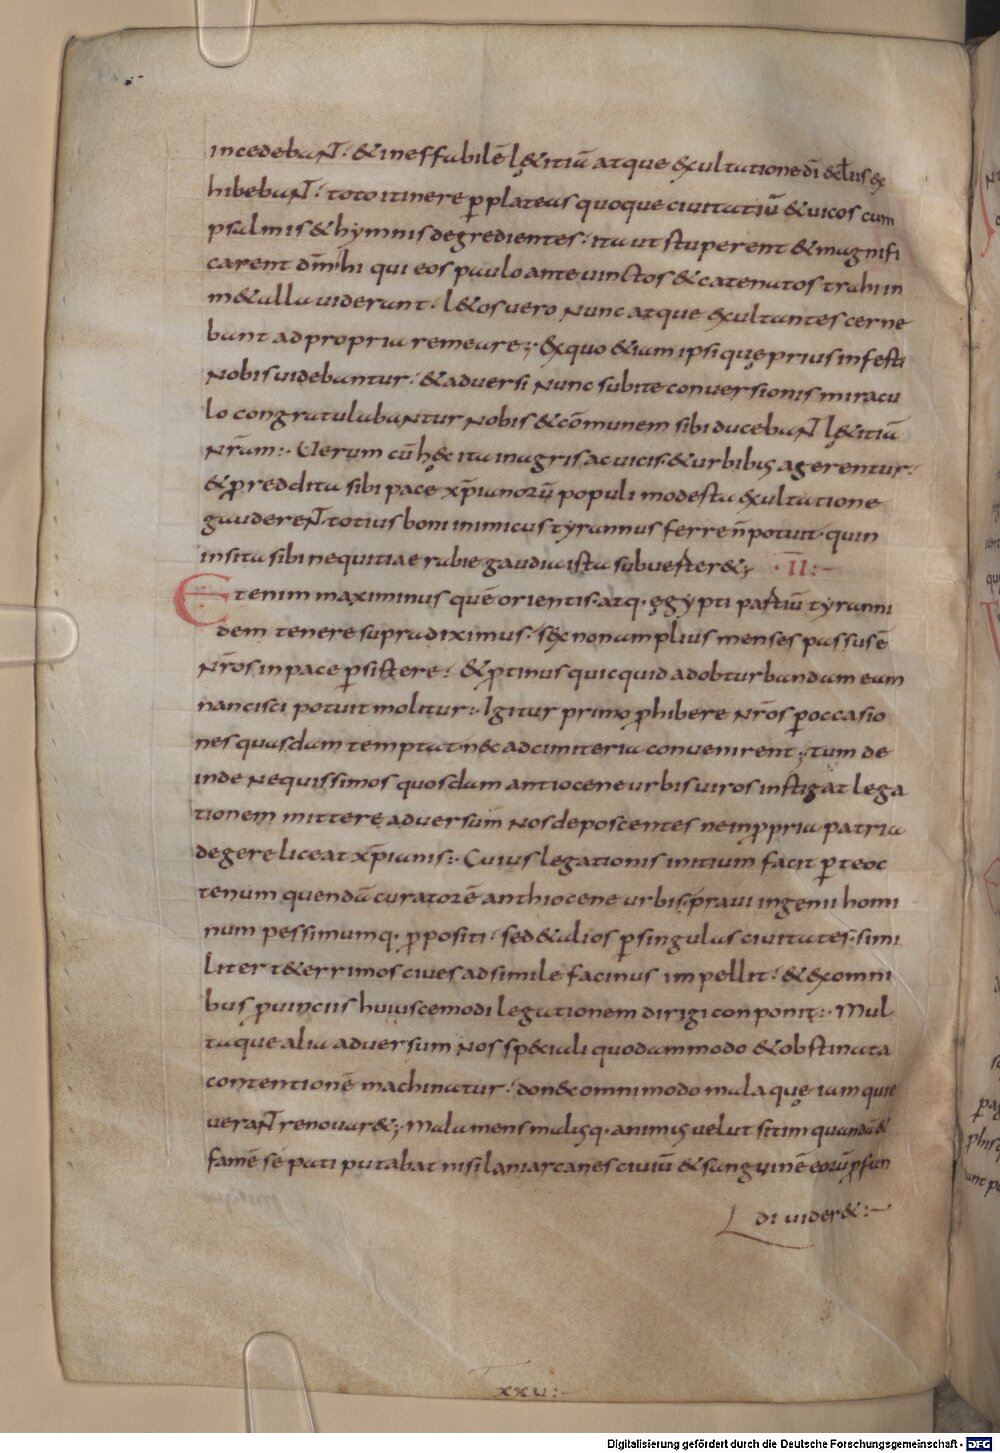 incedebaNT. & ineffabilē l&itiā atque exultatione dī & cl̄us ex
hibebaNT. toto itinere p̱ plateas quoque ciuitatiū & uicos cum
psalmis & hymnis degredientes. ita ut stuperent & magnifi
carent dm̄ hi qui eos paulo ante uinctos & catenatos trahi in
m&alla uiderant. l&os uero Nunc atque exultantes cerne
bant ad propria remeare; exquo &iam ipsi quę prius infesti
Nobis uidebantur. & aduersi Nunc subite conuersionis miracu
lo congratulabaNtur Nobis & cōmunem sibi ducebaNT lę&itiā
Nrā̄m:. Uerum cū hęc ita in agris ac uicis & urbibus agerentur.
& p̱ reddita sibi pace xp̄ianorū populi modesta exultatione
gaudereNT. totius boni inimicus tyrannus ferre ñ potuit. quin
insita sibi nequitiae rabie gaudia ista subuerter&; ·II:~
Etenim maximinus quē orientis. atq. ęgypti partiū tyranni
dem tenere supra diximus. sęx non amplius menses passus ē
Nr̄os in pace p̱sistere. & p̱tinus quicquid ad obturbandam eam
nancisci potuit molitur:. Igitur primo p̱hibere Nr̄os p̱ occasio
nes quasdam temptat. nec ad cimiteria conuenirent; tum de
inde Nequissimos quosdam antiocene urbis uiros instigat lega
tionem mittere aduersum Nos deposcentes ne in p̱pria patria
degere liceat xp̄ianis:. Cuius legationis initium facit p̱ teoc
tenum quendā curatorē anthiocene urbis. praui ingenii homi
num pessimumq. p̱positi. sed & alios p̱ singulas ciuitates. simi
liter t&errimos ciues ad simile facinus impellit. & ex omni
bus p̱uinciis huiuscemodi legationem dirigi conponit:. Mul
taque alia aduersum Nos speciali quodammodo & obstinata
contentionē machinatur. donec omnimodo mala quę iam quie
ueraNT renouar&; Mala mens malisq. animis uelut sitim quandā &
famē se pati putabat nisi laniar carnes ciuiū & sanguinē eorū p̱fun
di uider&:~
xxv:~
Digitalisierung gefördert durch die Deutsche Forschungsgemeinschaft - DFG